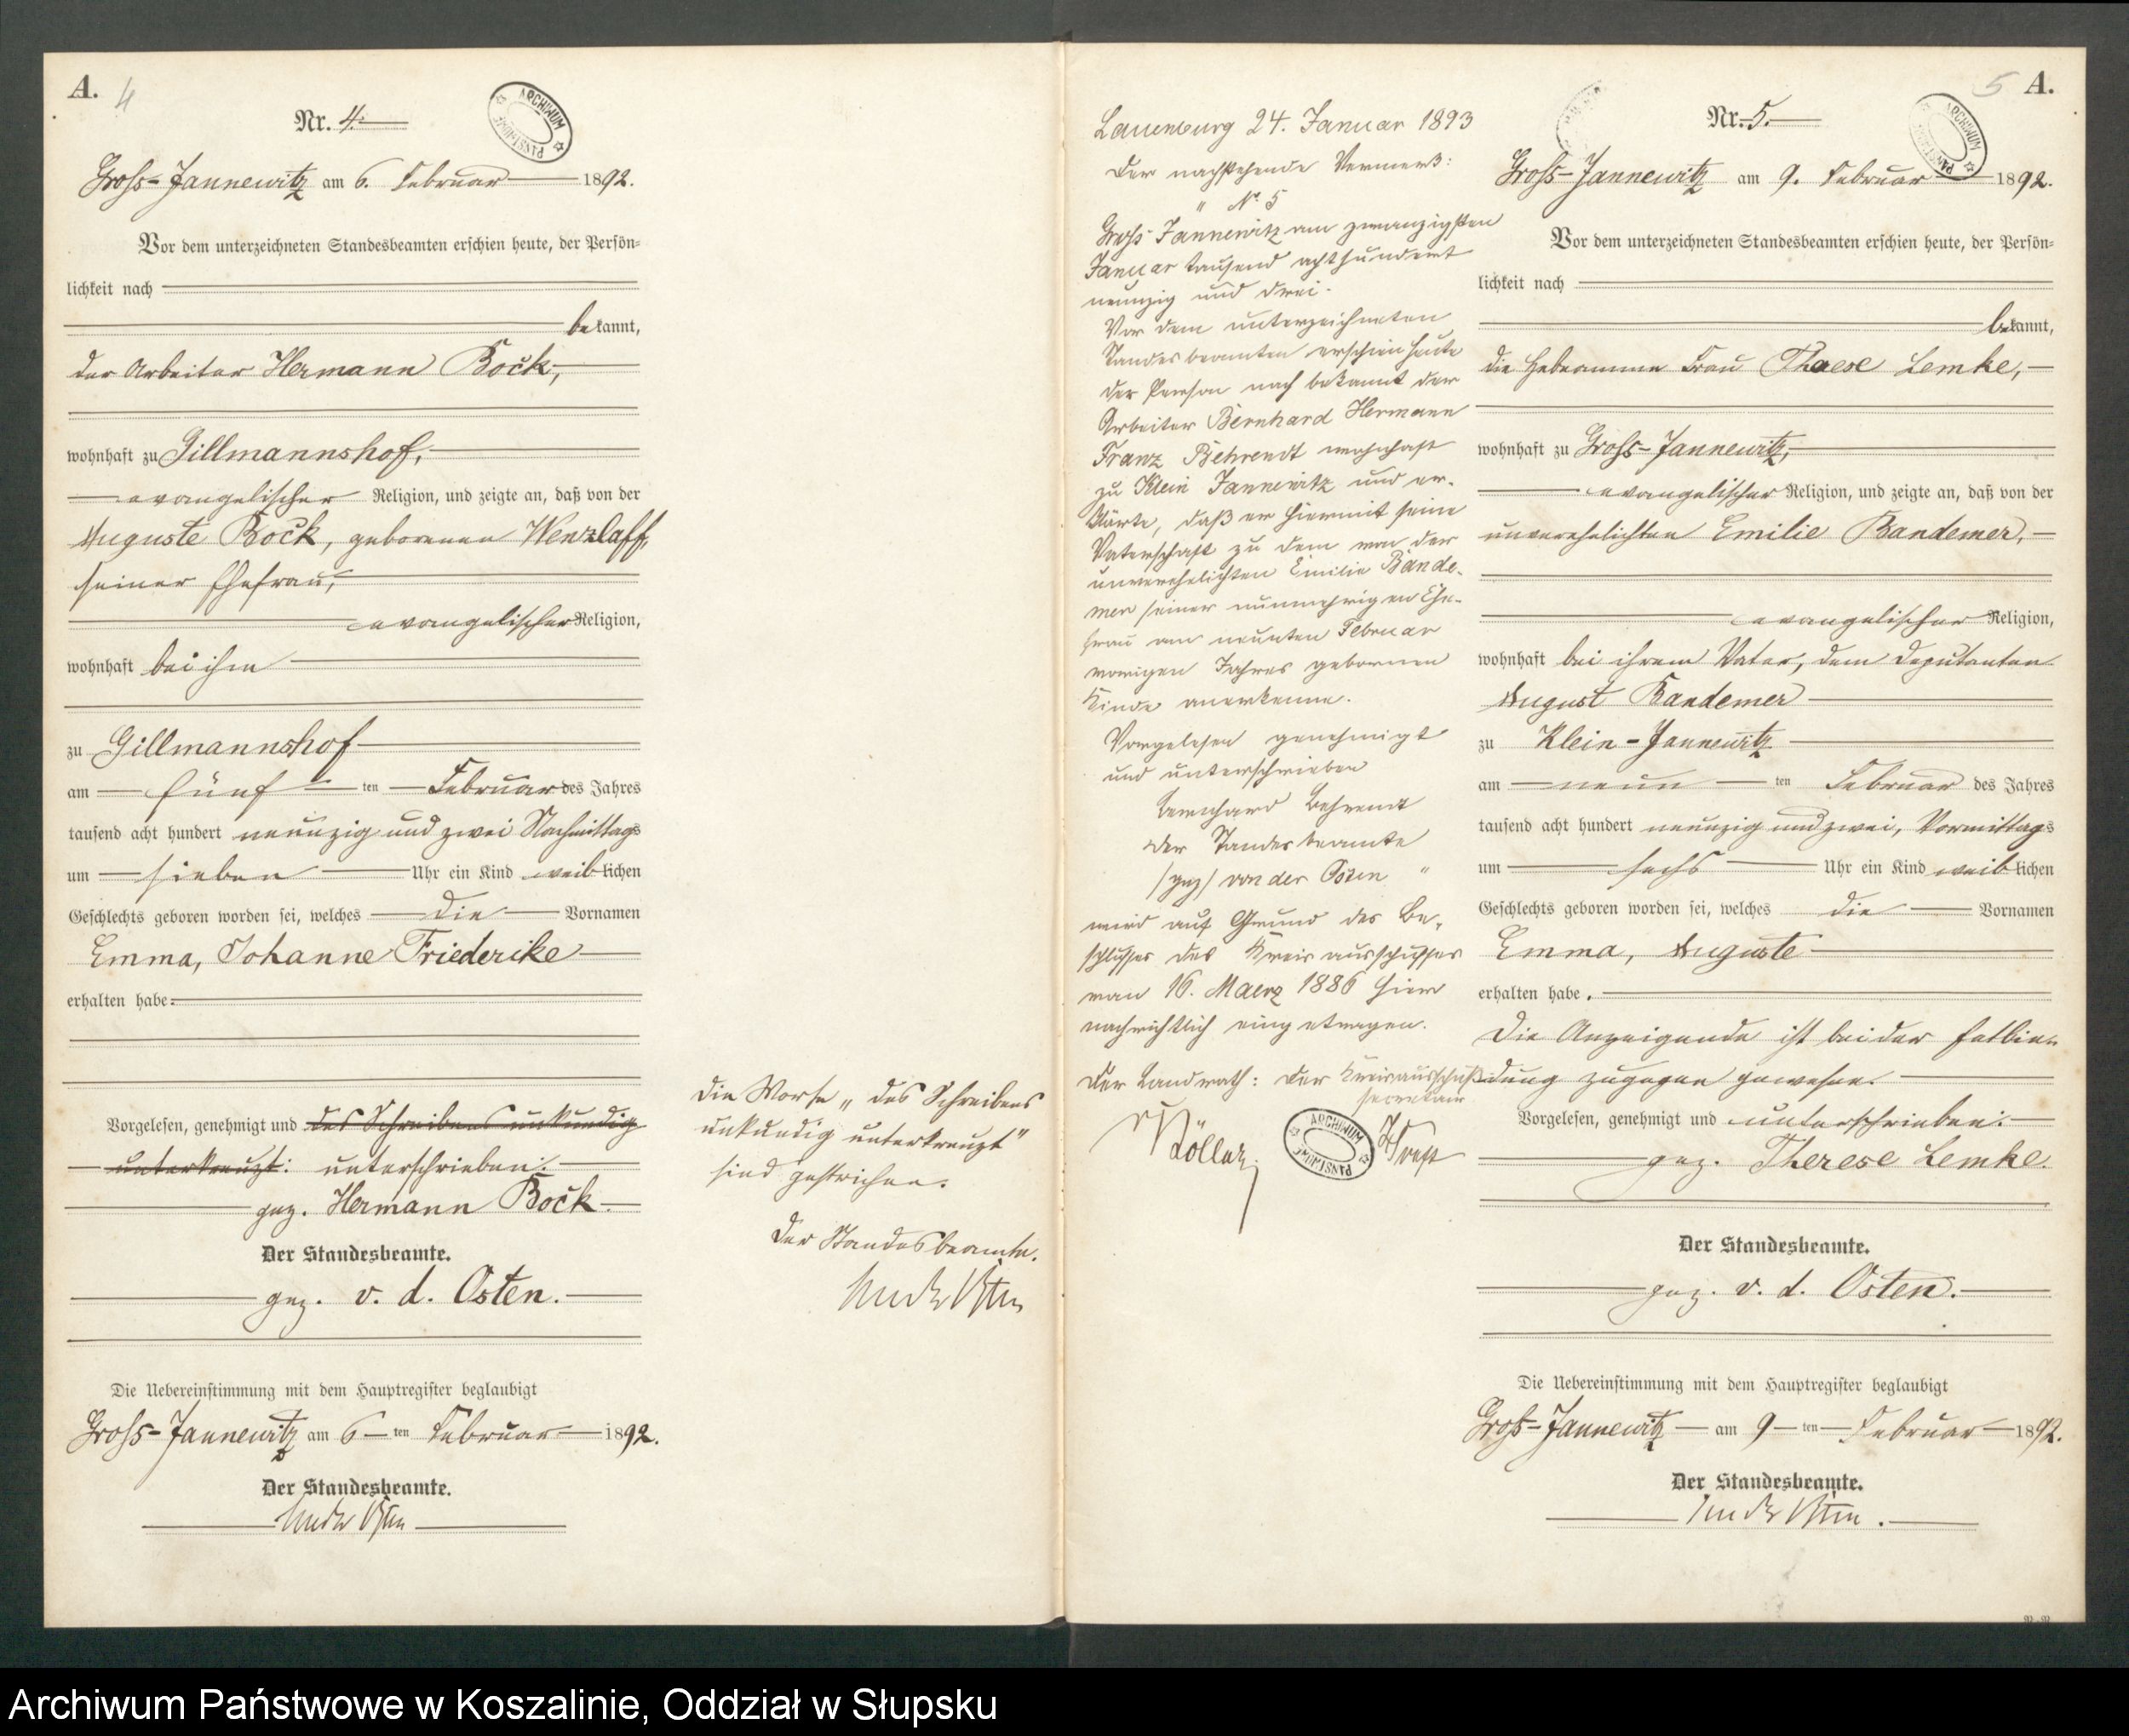 A.
4
Nr. 4.
ARCHIWUM PAŃSTWOWE
Groß-Jannewitz am 6. Februar 1892.
Vor dem unterzeichneten Standesbeamten erschien heute, der Persön-
lichkeit nach
bekannt,
der Arbeiter Hermann Bock,
wohnhaft zu Gillmannshof,
evangelischer Religion, und zeigte an, daß von der
Auguste Bock, geborenen Wenzlaff,
seiner Ehefrau,
evangelischer Religion,
wohnhaft bei ihm
zu Gillmannshof
am fünf ten Februar des Jahres
tausend acht hundert neunzig und zwei Nachmittags
um sieben Uhr ein Kind weiblichen
Geschlechts geboren worden sei, welches die Vornamen
Emma, Johanne Friederike
erhalten habe.
Vorgelesen, genehmigt und des Schreibens unkundig
unterkreuzt: unterschrieben:
gez. Hermann Bock.
Der Standesbeamte.
gez. v. d. Osten.
Die Uebereinstimmung mit dem Hauptregister beglaubigt
Groß-Jannewitz am 6 ten Februar 1892.
Der Standesbeamte.
von der Osten
Die Worte „des Schreibens
unkundig unterkreuzt"
sind gestrichen.
Der Standesbeamte.
von der Osten
Lauenburg 24. Januar 1893
Der nachstehende Vermerk:
„ No. 5
Gross Jannewitz am zwanzigsten
Januar tausend achthundert
neunzig und drei.
Vor dem unterzeichneten
Standesbeamten erschien heute
der Person nach bekannt der
Arbeiter Bernhard Hermann
Franz Behrendt wohnhaft
zu Klein Jannewitz und er-
klärte, daß er hiermit seine
Vaterschaft zu dem von der
unverehelichten Emilie Bande-
mer seiner nunmehrigen Ehe-
frau am neunten Februar
vorigen Jahres geborenen
Kinde anerkenne.
Vorgelesen genehmigt
und unterschrieben
Bernhard Behrendt
der Standesbeamte
/gez/ von der Osten "
wird auf Grund des Be-
schlusses des Kreisausschusses
vom 16. Maerz 1886 hier
nachrichtlich eingetragen.
Der Landrath: Der Kreisausschuß
secretair
ARCHIWUM PAŃSTWOWE
5 A.
Nr. 5.
ARCHIWUM PAŃSTWOWE
Groß-Jannewitz am 9. Februar 1892.
Vor dem unterzeichneten Standesbeamten erschien heute, der Persön-
lichkeit nach
bekannt,
die Hebeamme Frau Therese Lemke,
wohnhaft zu Groß-Jannewitz,
evangelischer Religion, und zeigte an, daß von der
unverehelichten Emilie Bandemer,
evangelischer Religion,
wohnhaft bei ihrem Vater, dem Deputanten
August Bandemer
zu Klein-Jannewitz
am neun ten Februar des Jahres
tausend acht hundert neunzig und zwei, Vormittags
um sechs Uhr ein Kind weiblichen
Geschlechts geboren worden sei, welches die Vornamen
Emma, Auguste
erhalten habe.
Die Anzeigende ist bei der Entbin-
dung zugegen gewesen.
Vorgelesen, genehmigt und unterschrieben:
gez. Therese Lemke.
Der Standesbeamte.
gez. v. d. Osten.
Die Uebereinstimmung mit dem Hauptregister beglaubigt
Groß-Jannewitz am 9 ten Februar 1892.
Der Standesbeamte.
von der Osten.
Archiwum Państwowe w Koszalinie, Oddział w Słupsku